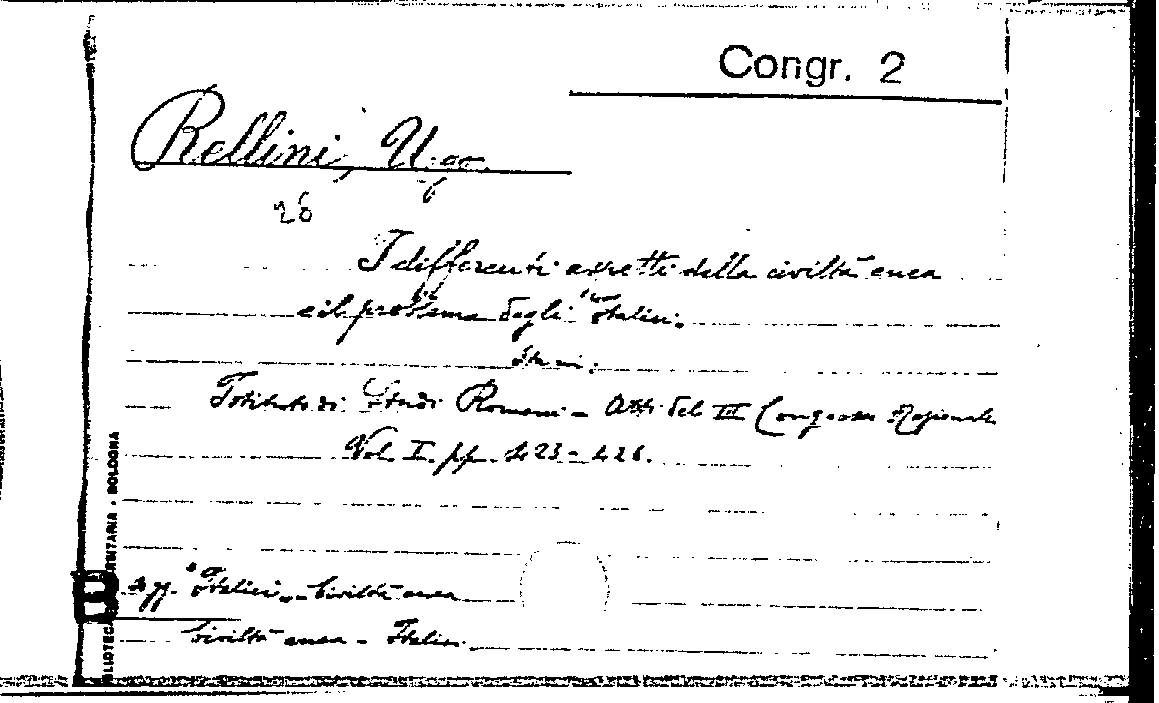 Congr. 2
Rellini, Ugo
26
I differenti aspetti della civiltà enea
e il problema degli "Italici„
Istituto di Studi Romani - Atti del III Congresso Nazionale
Vol. I. pp. 423-426.
sogg. "Italici„ - Civiltà enea
Civiltà enea - Italici
BIBLIOTECA BOLOGNA